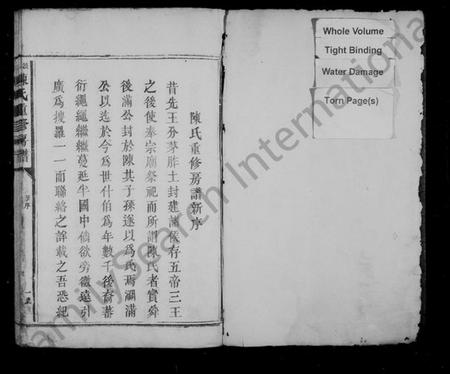 陳氏重修房譜新序
昔先王分茅胙土封建諸侯存五帝三王
之後使奉宗廟祭祀而所謂陳氏者實舜
後滿公封於陳其子孫遂以為氏焉溯滿
公以迄於今為世什伯為年數千後裔蕃
衍繩繩繼繼蔓延半國中倘欲旁徵遠引
廣為搜羅一一而聯絡之詳載之吾恐紀
陳氏重修房譜
序
一
Whole Volume
Tight Binding
Water Damage
Torn Page(s)
FamilySearch International